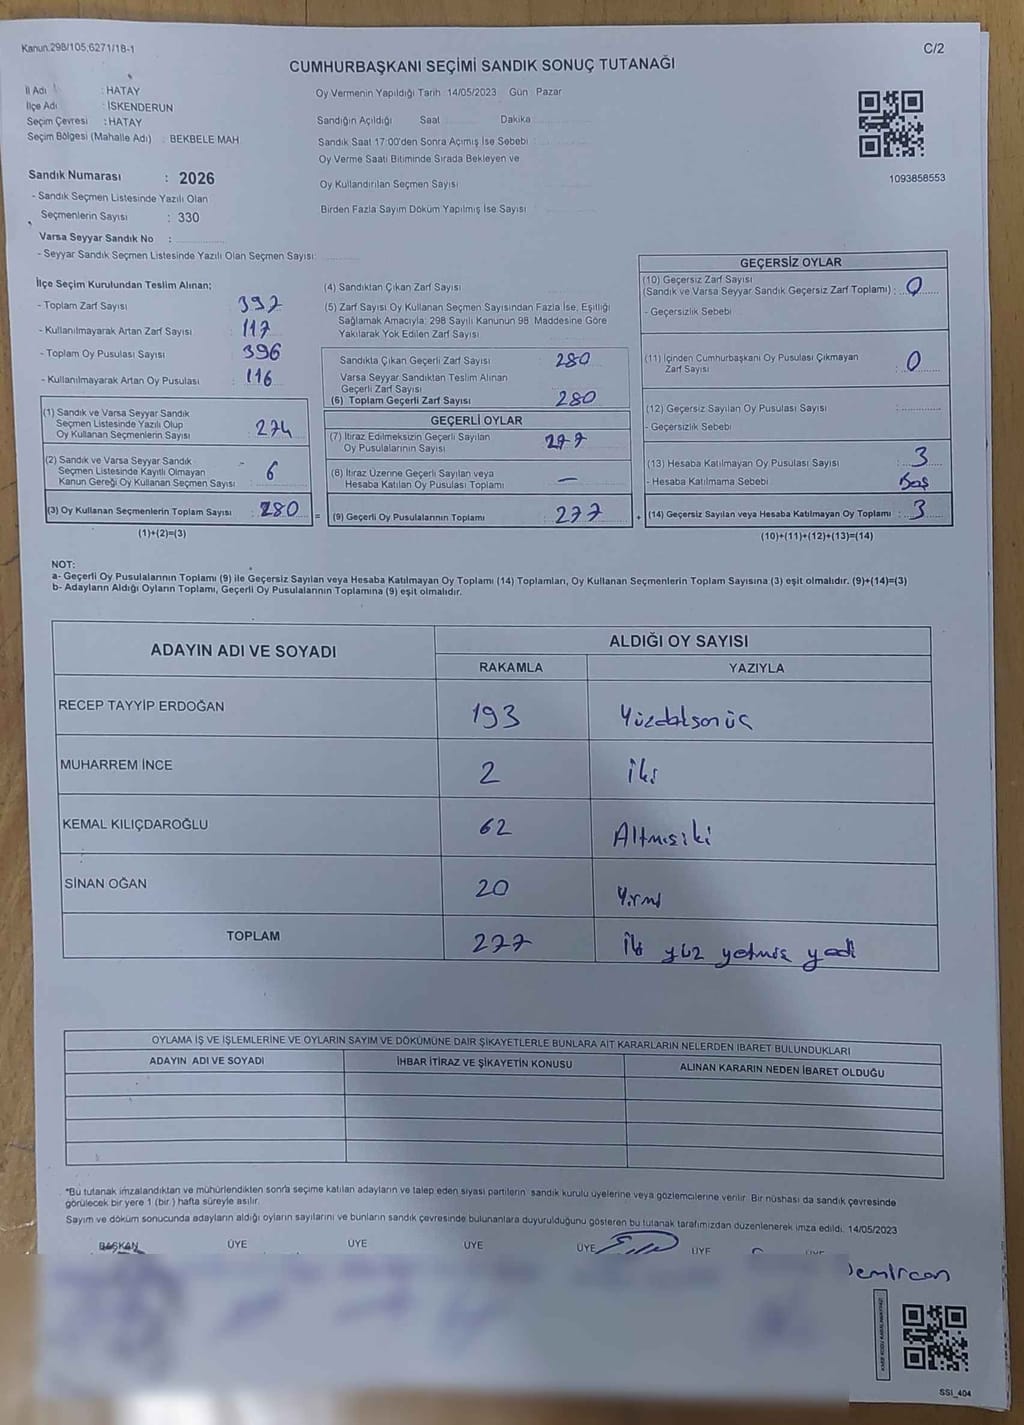 Kanun.298/105;6271/18-1
C/2
CUMHURBAŞKANI SEÇİMİ SANDIK SONUÇ TUTANAĞI
İl Adı : HATAY
İlçe Adı : İSKENDERUN
Seçim Çevresi : HATAY
Seçim Bölgesi (Mahalle Adı) : BEKBELE MAH
Sandık Numarası : 2026
- Sandık Seçmen Listesinde Yazılı Olan
Seçmenlerin Sayısı : 330
Varsa Seyyar Sandık No :
- Seyyar Sandık Seçmen Listesinde Yazılı Olan Seçmen Sayısı:
Oy Vermenin Yapıldığı Tarih : 14/05/2023 Gün : Pazar
Sandığın Açıldığı Saat Dakika
Sandık Saat 17:00'den Sonra Açımış İse Sebebi
Oy Verme Saati Bitiminde Sırada Bekleyen ve
Oy Kullandırılan Seçmen Sayısı
Birden Fazla Sayım Döküm Yapılmış İse Sayısı
1093858553
İlçe Seçim Kurulundan Teslim Alınan;
- Toplam Zarf Sayısı 397
- Kullanılmayarak Artan Zarf Sayısı : 117
- Toplam Oy Pusulası Sayısı 396
- Kullanılmayarak Artan Oy Pusulası : 116
(1) Sandık ve Varsa Seyyar Sandık
Seçmen Listesinde Yazılı Olup
Oy Kullanan Seçmenlerin Sayısı : 274
(2) Sandık ve Varsa Seyyar Sandık
Seçmen Listesinde Kayıtlı Olmayan
Kanun Gereği Oy Kullanan Seçmen Sayısı : 6
(3) Oy Kullanan Seçmenlerin Toplam Sayısı : 280
(1)+(2)=(3)
(4) Sandıktan Çıkan Zarf Sayısı
(5) Zarf Sayısı Oy Kullanan Seçmen Sayısından Fazla İse, Eşitliği
Sağlamak Amacıyla; 298 Sayılı Kanunun 98. Maddesine Göre
Yakılarak Yok Edilen Zarf Sayısı
Sandıkta Çıkan Geçerli Zarf Sayısı 280
Varsa Seyyar Sandıktan Teslim Alınan
Geçerli Zarf Sayısı
(6) Toplam Geçerli Zarf Sayısı 280
GEÇERLİ OYLAR
(7) İtiraz Edilmeksizin Geçerli Sayılan
Oy Pusulalarının Sayısı 277
(8) İtiraz Üzerine Geçerli Sayılan veya
Hesaba Katılan Oy Pusulası Toplamı : —
= (9) Geçerli Oy Pusulalarının Toplamı : 277
GEÇERSİZ OYLAR
(10) Geçersiz Zarf Sayısı
(Sandık ve Varsa Seyyar Sandık Geçersiz Zarf Toplamı) : 0
- Geçersizlik Sebebi
(11) İçinden Cumhurbaşkanı Oy Pusulası Çıkmayan
Zarf Sayısı : 0
(12) Geçersiz Sayılan Oy Pusulası Sayısı :
- Geçersizlik Sebebi
(13) Hesaba Katılmayan Oy Pusulası Sayısı : 3
- Hesaba Katılmama Sebebi Boş
+ (14) Geçersiz Sayılan veya Hesaba Katılmayan Oy Toplamı : 3
(10)+(11)+(12)+(13)=(14)
NOT:
a- Geçerli Oy Pusulalarının Toplamı (9) ile Geçersiz Sayılan veya Hesaba Katılmayan Oy Toplamı (14) Toplamları, Oy Kullanan Seçmenlerin Toplam Sayısına (3) eşit olmalıdır. (9)+(14)=(3)
b- Adayların Aldığı Oyların Toplamı, Geçerli Oy Pusulalarının Toplamına (9) eşit olmalıdır.
ADAYIN ADI VE SOYADI
ALDIĞI OY SAYISI
RAKAMLA YAZIYLA
RECEP TAYYİP ERDOĞAN 193 Yüzdoksonüç
MUHARREM İNCE 2 iki
KEMAL KILIÇDAROĞLU 62 Altmışiki
SİNAN OĞAN 20 Yirmi
TOPLAM 277 İki yüz yetmiş yedi
OYLAMA İŞ VE İŞLEMLERİNE VE OYLARIN SAYIM VE DÖKÜMÜNE DAİR ŞİKAYETLERLE BUNLARA AİT KARARLARIN NELERDEN İBARET BULUNDUKLARI
ADAYIN ADI VE SOYADI İHBAR İTİRAZ VE ŞİKAYETİN KONUSU ALINAN KARARIN NEDEN İBARET OLDUĞU
*Bu tutanak imzalandıktan ve mühürlendikten sonra seçime katılan adayların ve talep eden siyasi partilerin sandık kurulu üyelerine veya gözlemcilerine verilir. Bir nüshası da sandık çevresinde
görülecek bir yere 1 (bir ) hafta süreyle asılır.
Sayım ve döküm sonucunda adayların aldığı oyların sayılarını ve bunların sandık çevresinde bulunanlara duyurulduğunu gösteren bu tutanak tarafımızdan düzenlenerek imza edildi. 14/05/2023
BAŞKAN ÜYE ÜYE ÜYE ÜYE ÜYE
Demircan
SSI_404